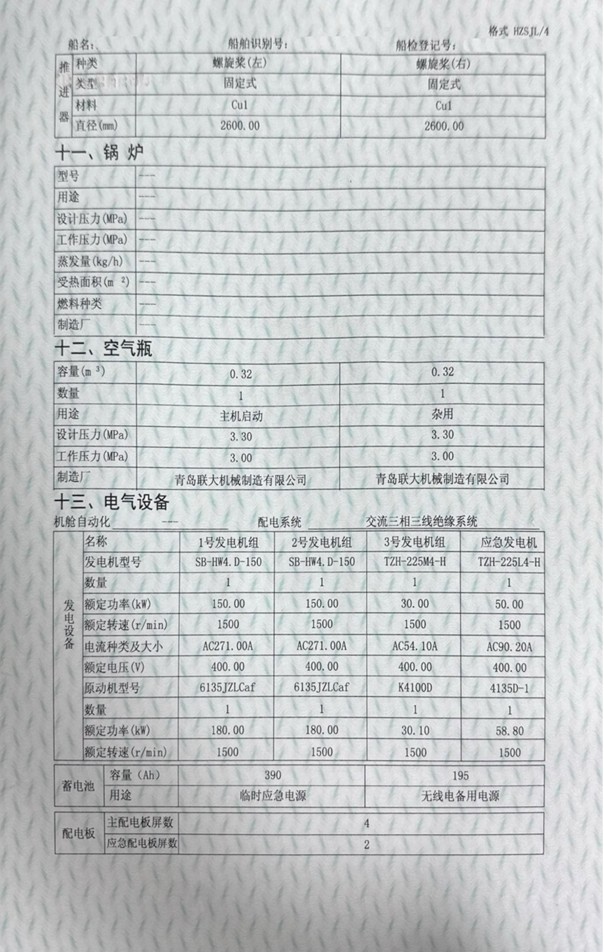 格式 HZSJL/4
船名: 船舶识别号: 船检登记号:
推进器 种类 螺旋桨(左) 螺旋桨(右)
类型 固定式 固定式
材料 Cu1 Cu1
直径(mm) 2600.00 2600.00
十一、锅 炉
型号 ---
用途 ---
设计压力(MPa) ---
工作压力(MPa) ---
蒸发量(kg/h) ---
受热面积(m ²) ---
燃料种类 ---
制造厂 ---
十二、空气瓶
容量(m ³) 0.32 0.32
数量 1 1
用途 主机启动 杂用
设计压力(MPa) 3.30 3.30
工作压力(MPa) 3.00 3.00
制造厂 青岛联大机械制造有限公司 青岛联大机械制造有限公司
十三、电气设备
机舱自动化 --- 配电系统 交流三相三线绝缘系统
发电设备 名称 1号发电机组 2号发电机组 3号发电机组 应急发电机
发电机型号 SB-HW4.D-150 SB-HW4.D-150 TZH-225M4-H TZH-225L4-H
数量 1 1 1 1
额定功率(kW) 150.00 150.00 30.00 50.00
额定转速(r/min) 1500 1500 1500 1500
电流种类及大小 AC271.00A AC271.00A AC54.10A AC90.20A
额定电压(V) 400.00 400.00 400.00 400.00
原动机型号 6135JZLCaf 6135JZLCaf K4100D 4135D-1
数量 1 1 1 1
额定功率(kW) 180.00 180.00 30.10 58.80
额定转速(r/min) 1500 1500 1500 1500
蓄电池 容量（Ah） 390 195
用途 临时应急电源 无线电备用电源
配电板 主配电板屏数 4
应急配电板屏数 2